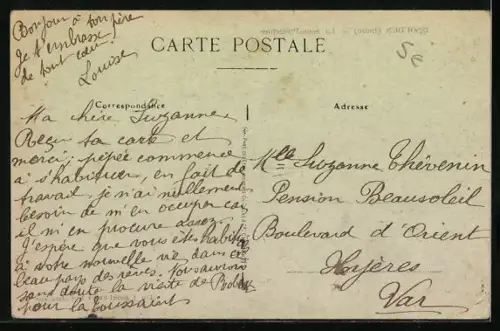 Bonjour à ton père
Je t'embrasse
de tout cœur.
Louise
CARTE POSTALE
5e
Correspondance
Adresse
Ma chère Suzanne,
Reçu ta carte et
merci; pépée commence
à s'habituer, en fait de
travail je n'ai nullement
besoin de m'en occuper car
il m'en procure assez.
J'espère que vous êtes habitués
à votre nouvelle vie dans ce
beau pays des rêves.
sans doute la visite de
pour la Toussaint
Mlle Suzanne Thévenin
Pension Beausoleil
Boulevard d'Orient
Hyères
Var